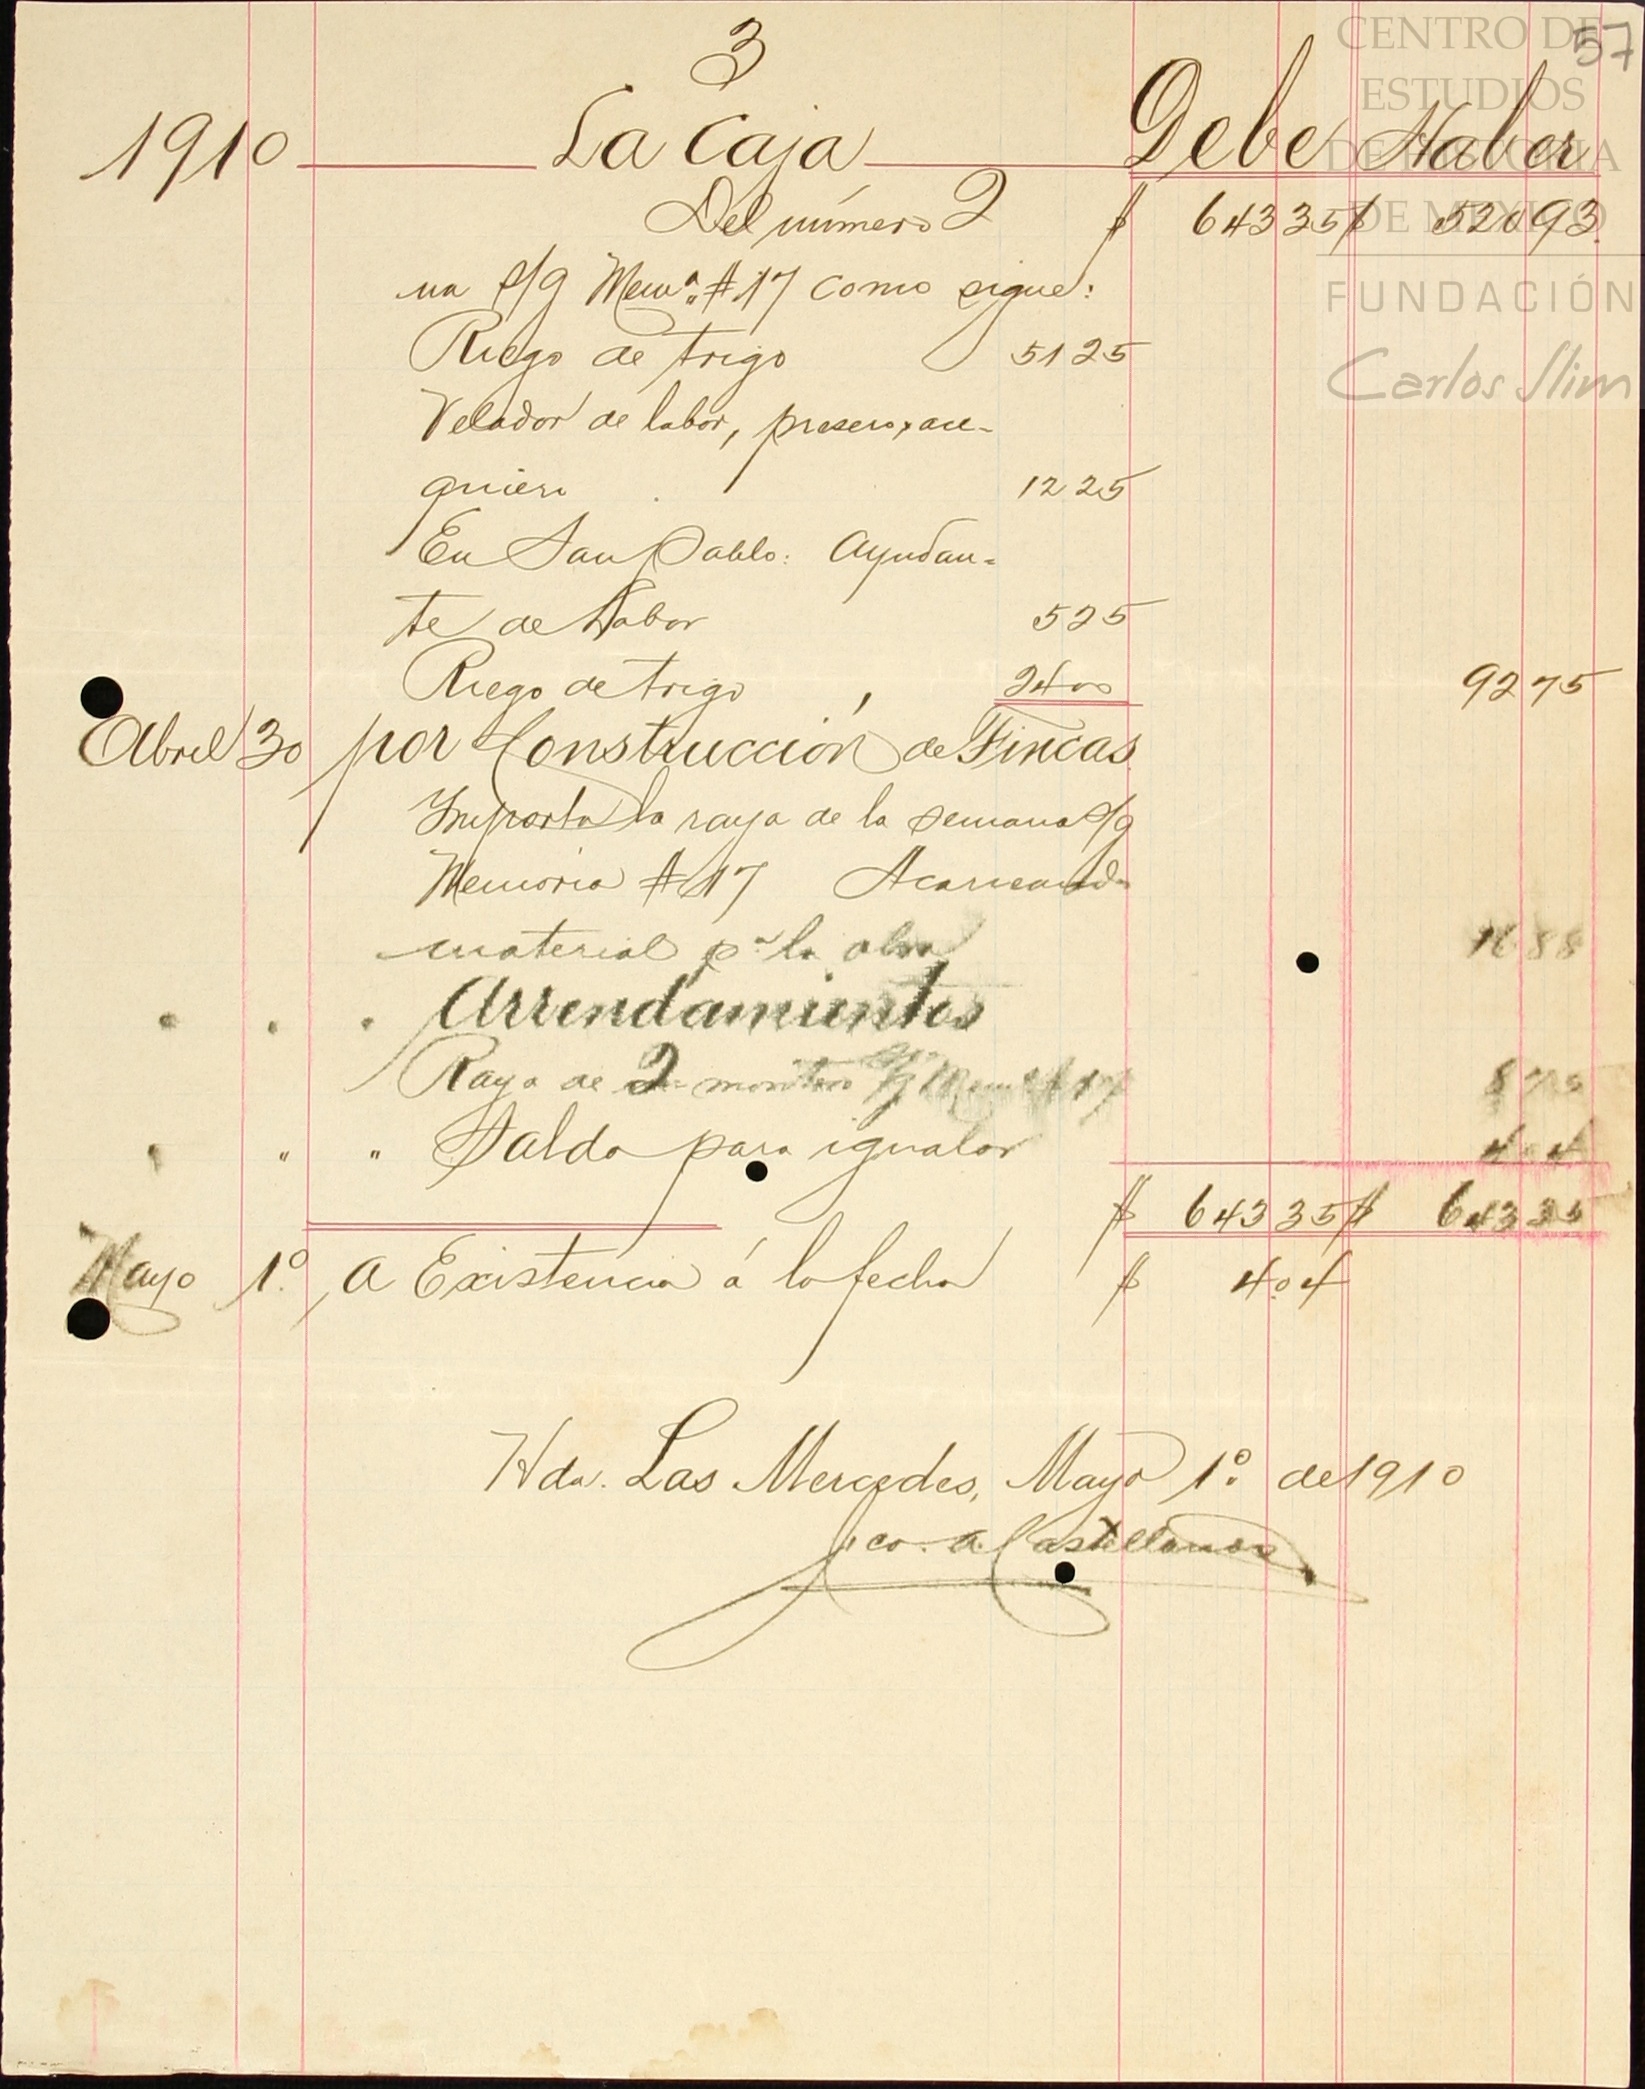 57
CENTRO DE
ESTUDIOS
DE HISTORIA
DE MEXICO
FUNDACIÓN
Carlos Slim
3
1910 La Caja Debe Haber
Del número 2 $ 643 35 $ 520 93
na s/g Mema. #17 como sigue:
Riego de trigo 51 25
Velador de labor, presero, ace-
quiero 12 25
En San Pablo: Ayudan-
te de Labor 5 25
Riego de trigo 24 00 92 75
Abril 30 por Construcción de Fincas
Importa la raya de la semana s/g
Memoria #17 Acarreando
material pa la obra 16 88
" " " Arrendamientos
Raya de 2 montero s/g Mema #17 8 75
" " " Saldo para igualar 4 04
$ 643 35 $ 643 35
Mayo 1º. a Existencia á la fecha $ 4 04
Hda. Las Mercedes, Mayo 1º. de 1910
Fco. A. Castellanos